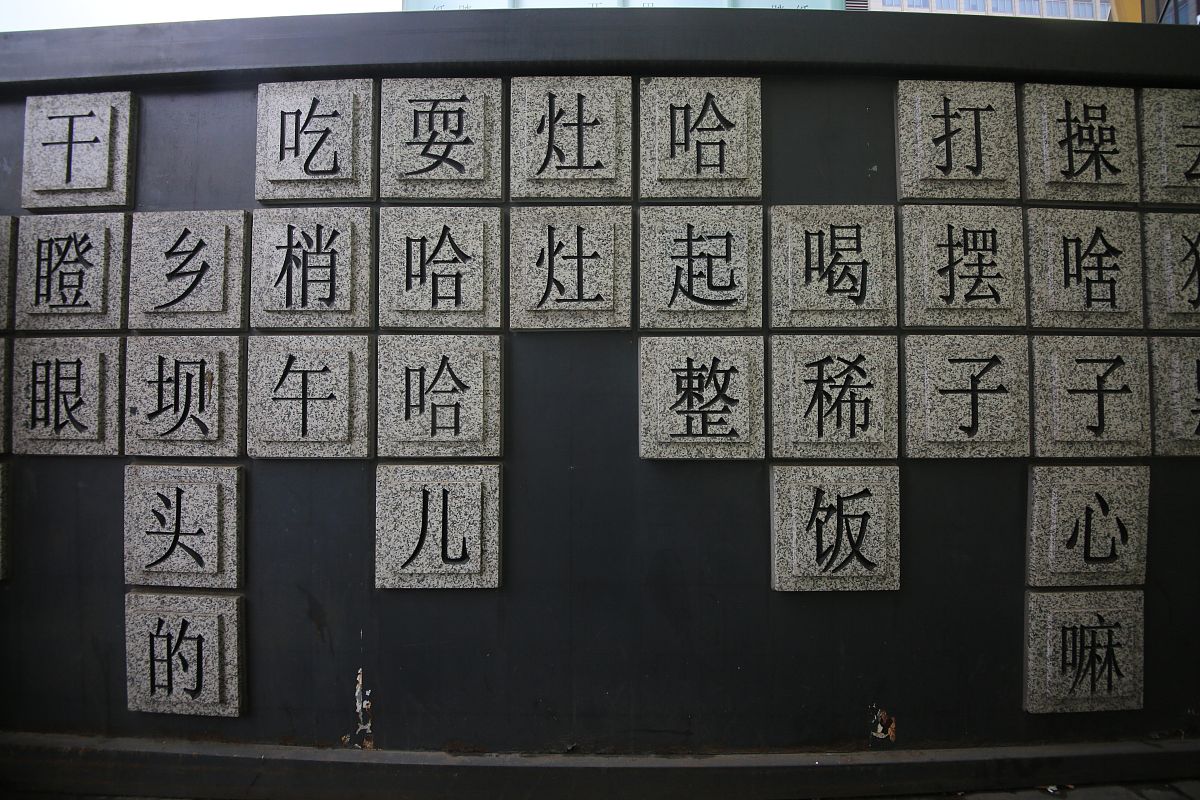 干瞪眼
乡坝头的
吃梢午
耍哈哈儿
灶灶
哈起整
喝稀饭
打摆子
操啥子心嘛